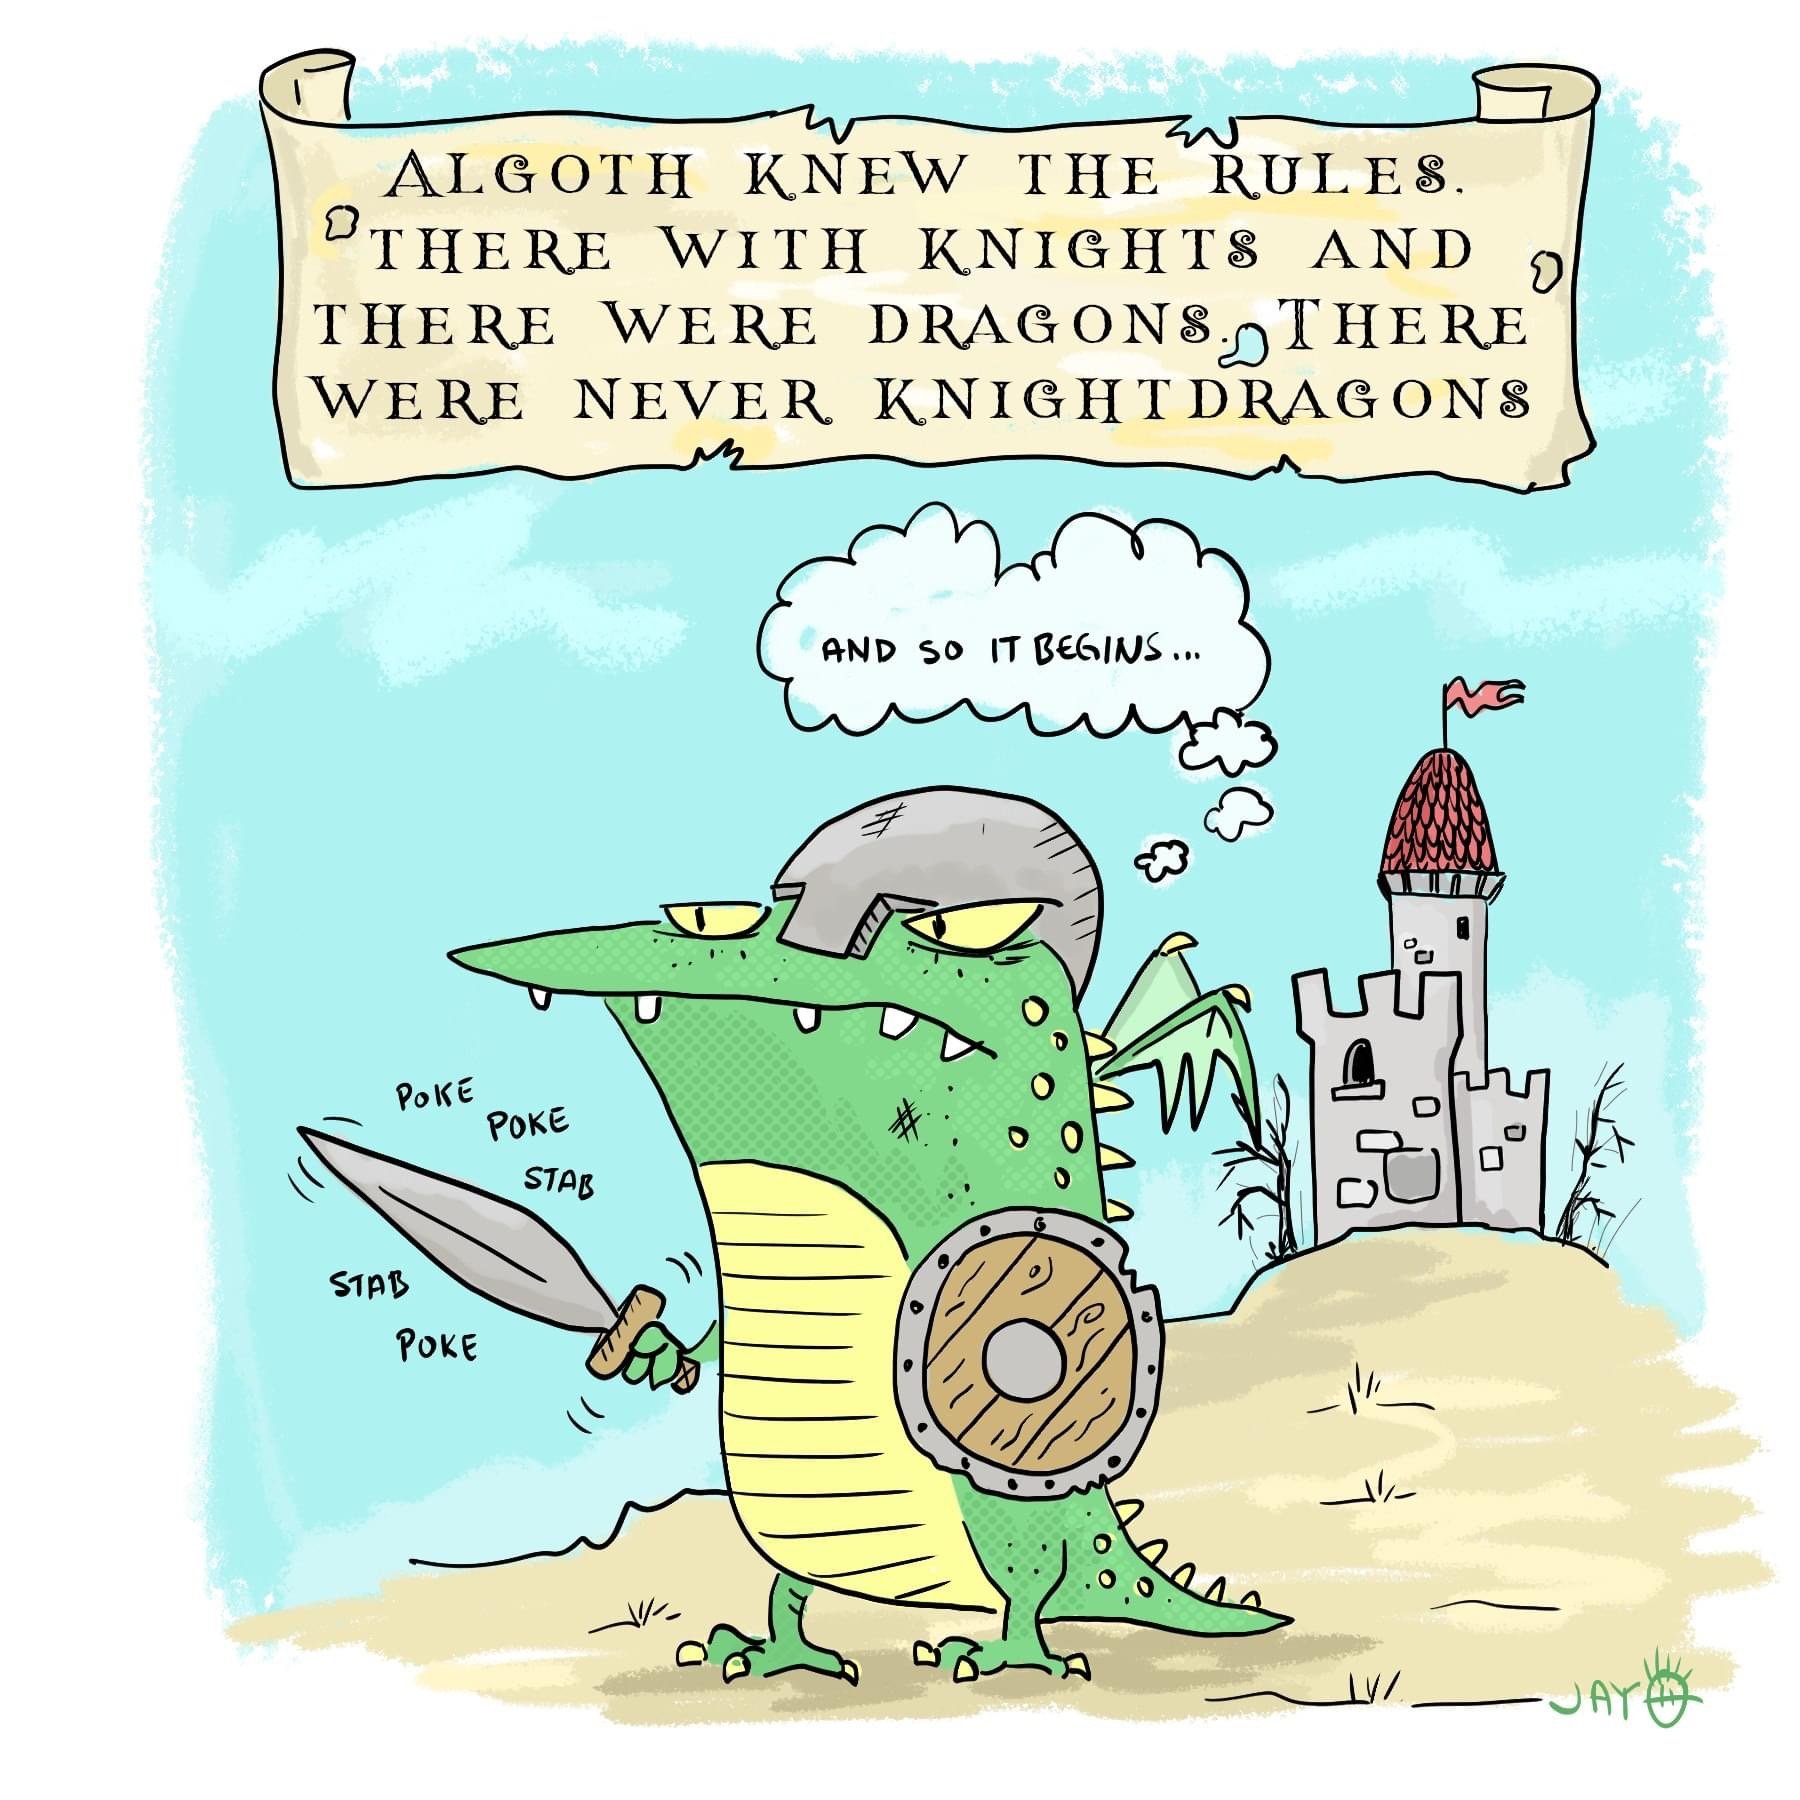 ALGOTH KNEW THE RULES.
THERE WITH KNIGHTS AND
THERE WERE DRAGONS. THERE
WERE NEVER KNIGHTDRAGONS
AND SO IT BEGINS...
POKE
POKE
STAB
STAB
POKE
JAY